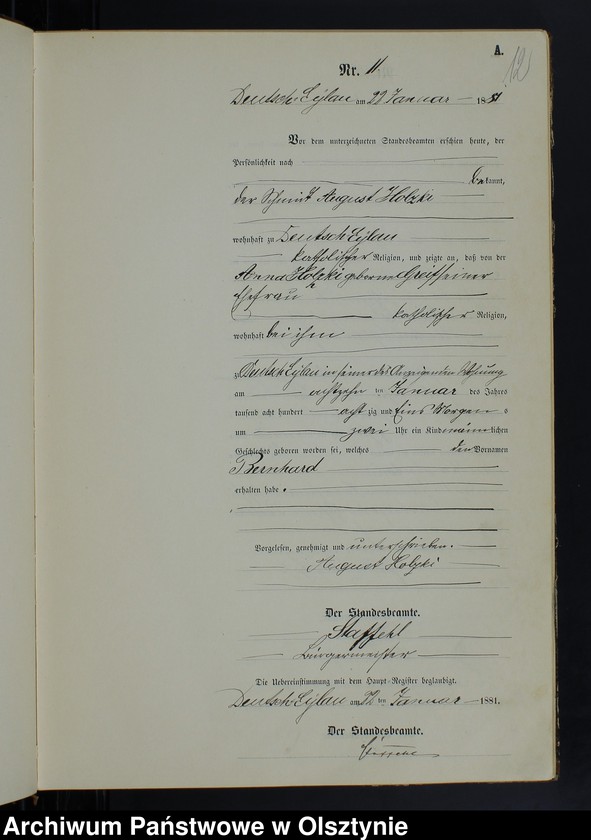 A.
12
Nr. 11
Deutsch Eylau am 22 Januar 1881
Vor dem unterzeichneten Standesbeamten erschien heute, der
Persönlichkeit nach
bekannt,
der Schmidt August Holzki
wohnhaft zu Deutsch Eylau
katholischer Religion, und zeigte an, daß von der
Anna Holzki geborene seiner
Ehefrau
katholischer Religion,
wohnhaft bei ihm
zu Deutsch Eylau in seiner des Anzeigenden Wohnung
am achtzehn ten Januar des Jahres
tausend acht hundert acht zig und Eins Morgens
um zwei Uhr ein Kind männlichen
Geschlechts geboren worden sei, welches den Vornamen
Bernhard
erhalten habe.
Vorgelesen, genehmigt und unterschrieben.
August Holzki
Der Standesbeamte.
Staffehl
Bürgermeister
Die Uebereinstimmung mit dem Haupt-Register beglaubigt.
Deutsch Eylau am 22 ten Januar 1881.
Der Standesbeamte.
Archiwum Państwowe w Olsztynie